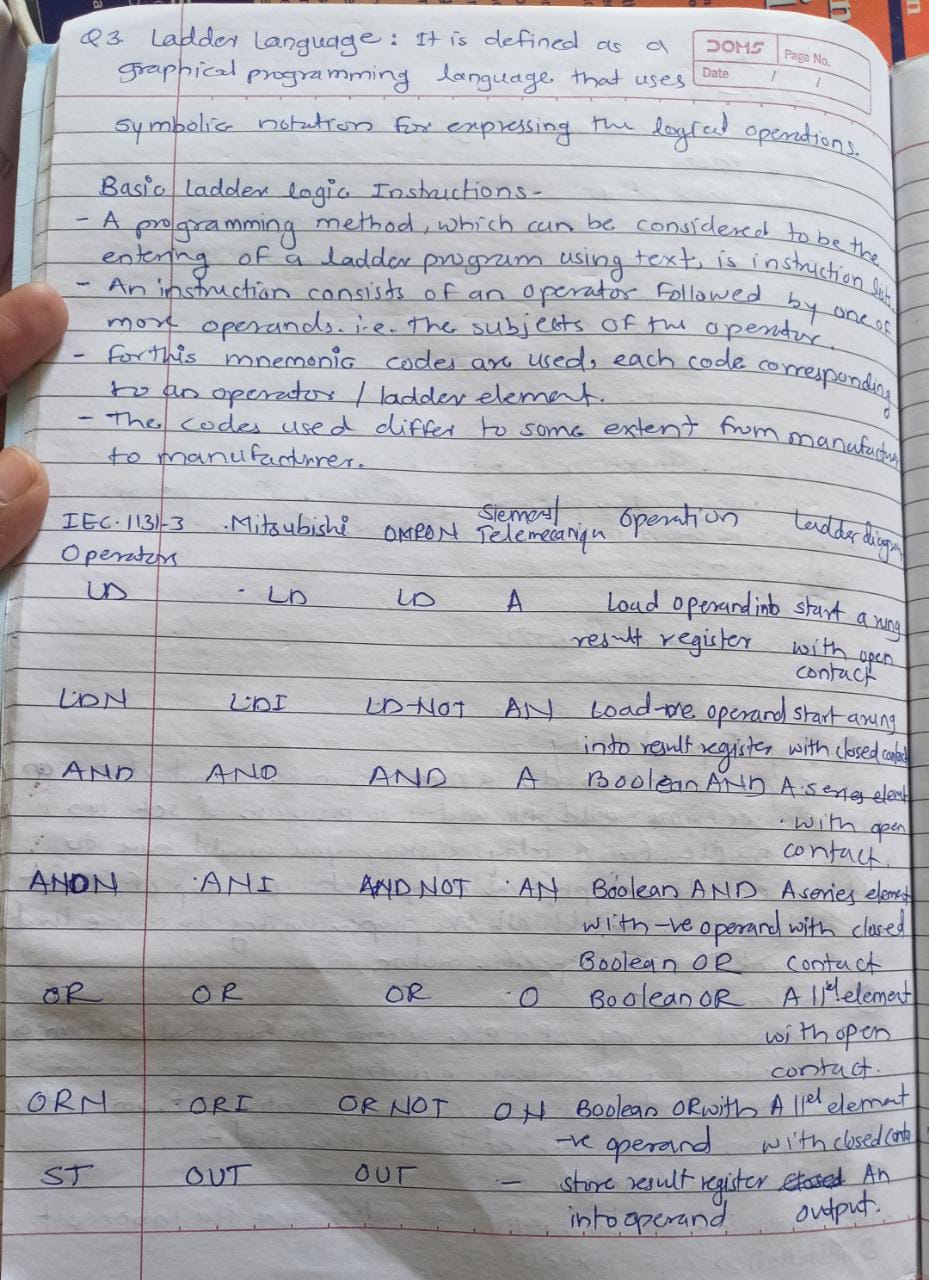 Q3. Ladder Language: It is defined as a
DOMS Page No.
Date / /
graphical programming language that uses
symbolic notation for expressing the logical operations.
Basic ladder logic Instructions-
- A programming method, which can be considered to be the
entering of a ladder program using text, is instruction
- An instruction consists of an operator followed by one of
more operands. i.e. the subjects of the operator.
- for this mnemonic codes are used, each code corresponding
to an operator / ladder element.
- The codes used differ to some extent from manufactur
to manufacturer.
IEC. 1131-3 Mitsubishi OMRON Siemens/ Operation Ladder diagram
Operators Telemecaniqu
LD - LD LD A Load operand into start a rung
result register with open
contact
LDN LDI LD-NOT AN Load -ve operand start a rung
into result register with closed contact
AND AND AND A Boolean AND A series element
with open
contact.
ANDN ANI AND NOT AN Boolean AND A series element
with -ve operand with closed
Boolean OR contact
OR OR OR O Boolean OR A ||el element
with open
contact.
ORN ORI OR NOT ON Boolean OR with A ||el element
-ve operand with closed conta
ST OUT OUT — store result register An
into operand output.